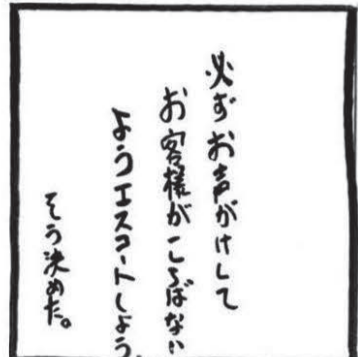 必ずお声がけして
お客様がころばない
ようエスコートしよう。
そう決めた。